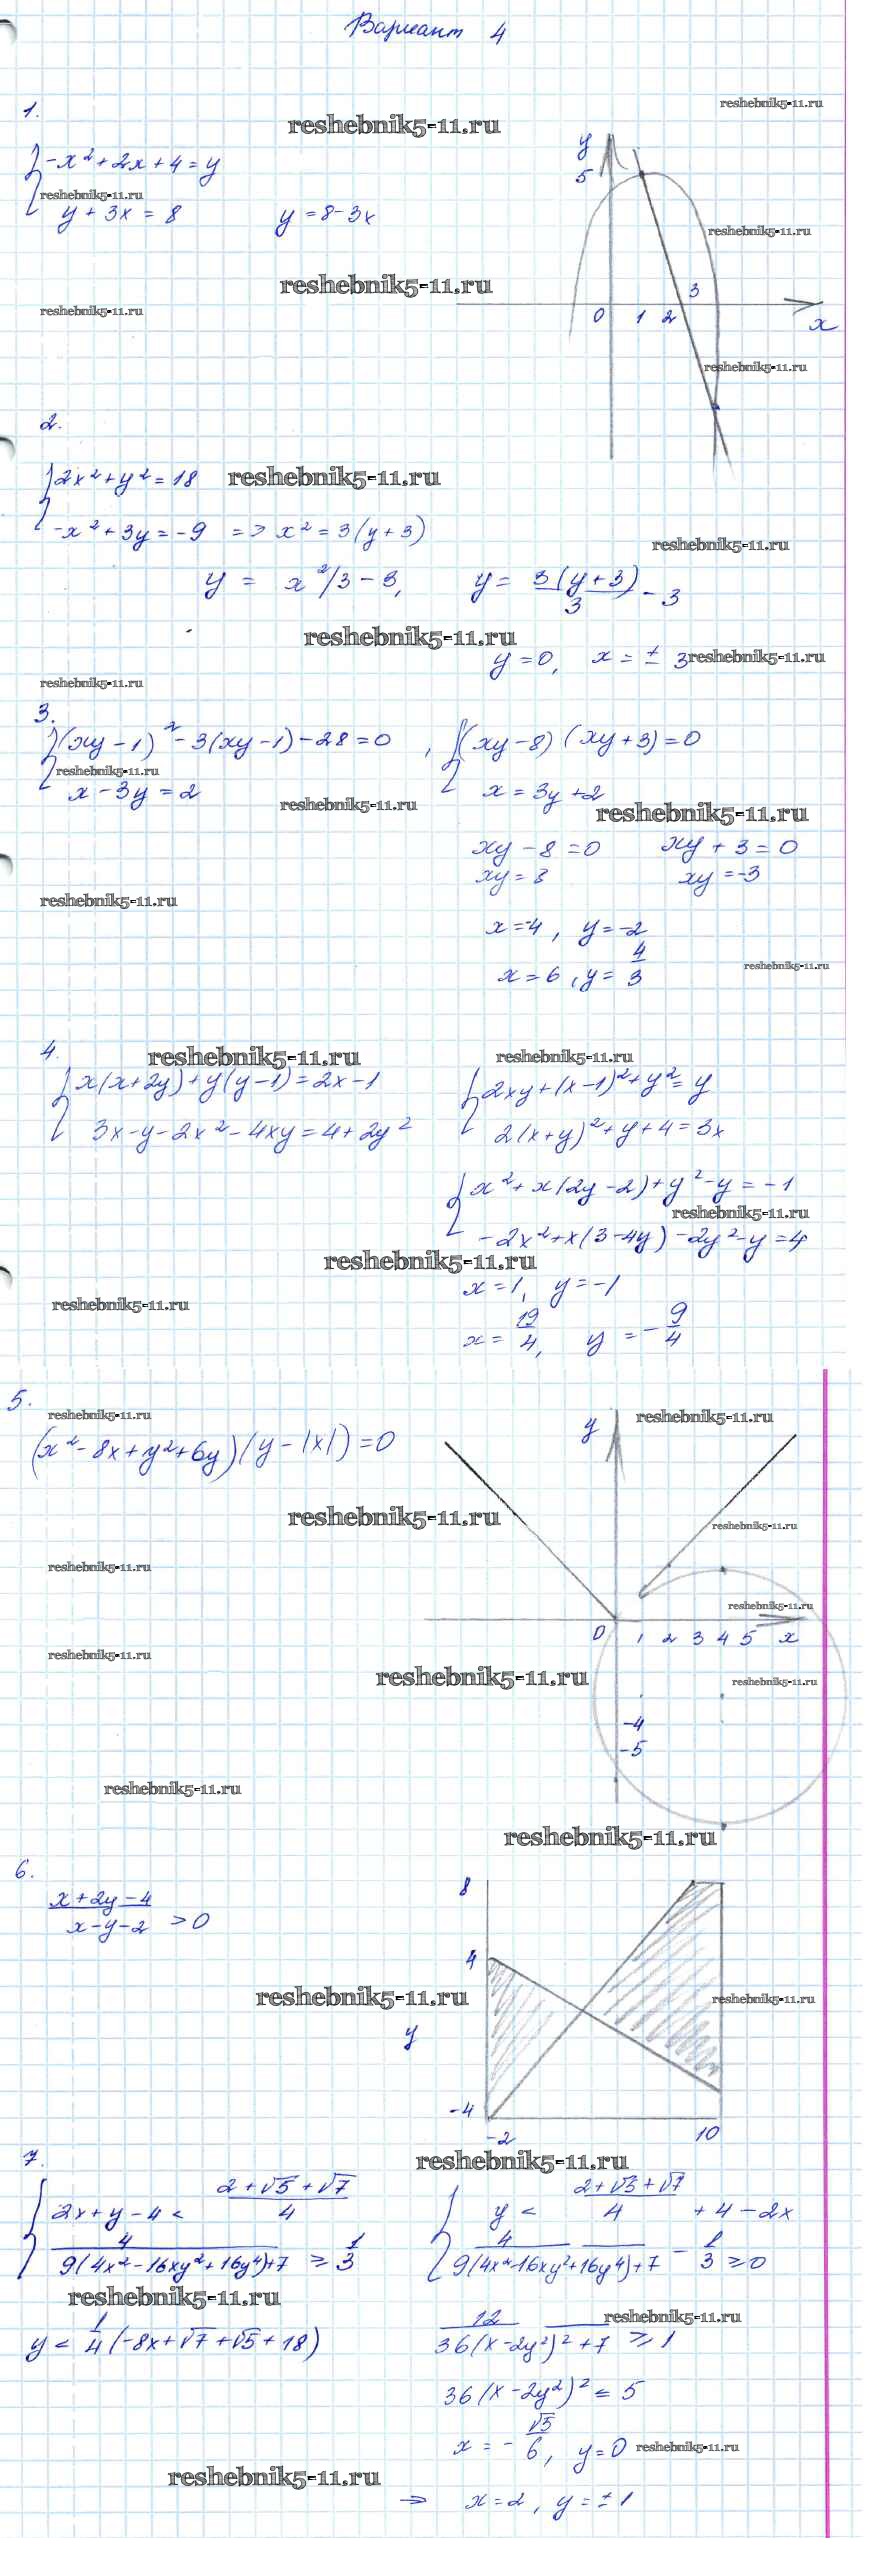 Вариант 4
1.
reshebnik5-11.ru
reshebnik5-11.ru
y
5
-x² + 2x + 4 = y
reshebnik5-11.ru
y + 3x = 8
y = 8 - 3x
reshebnik5-11.ru
reshebnik5-11.ru
3
reshebnik5-11.ru
0 1 2 x
reshebnik5-11.ru
2.
2x² + y² = 18
reshebnik5-11.ru
-x² + 3y = -9 => x² = 3(y+3)
reshebnik5-11.ru
y = x²/3 - 3, y = 3(y+3)/3 - 3
reshebnik5-11.ru
y = 0, x = ± 3
reshebnik5-11.ru
reshebnik5-11.ru
3.
(xy-1)² - 3(xy-1) - 28 = 0 , (xy-8)(xy+3) = 0
reshebnik5-11.ru
x - 3y = 2
x = 3y + 2
reshebnik5-11.ru
reshebnik5-11.ru
xy - 8 = 0 xy + 3 = 0
xy = 8 xy = -3
reshebnik5-11.ru
x = -4, y = -2
x = 6, y = 4/3
reshebnik5-11.ru
4.
reshebnik5-11.ru
reshebnik5-11.ru
x(x+2y) + y(y-1) = 2x - 1 2xy + (x-1)² + y² = y
3x - y - 2x² - 4xy = 4 + 2y² 2(x+y)² + y + 4 = 3x
x² + x(2y-2) + y² - y = -1
reshebnik5-11.ru
-2x² + x(3-4y) - 2y² - y = 4
reshebnik5-11.ru
x = 1, y = -1
reshebnik5-11.ru
x = 19/4, y = -9/4
5.
reshebnik5-11.ru
y
reshebnik5-11.ru
(x² - 8x + y² + 6y)(y - |x|) = 0
reshebnik5-11.ru
reshebnik5-11.ru
reshebnik5-11.ru
reshebnik5-11.ru
0 1 2 3 4 5 x
reshebnik5-11.ru
reshebnik5-11.ru
reshebnik5-11.ru
-4
-5
reshebnik5-11.ru
reshebnik5-11.ru
6.
8
(x+2y-4)/(x-y-2) > 0
4
reshebnik5-11.ru
reshebnik5-11.ru
y
-4
-2 10
7.
reshebnik5-11.ru
2x + y - 4 < (2+√5+√7)/4 y < (2+√5+√7)/4 + 4 - 2x
4/(9(4x²-16xy²+16y⁴)+7) ≥ 1/3 4/(9(4x²-16xy²+16y⁴)+7) - 1/3 ≥ 0
reshebnik5-11.ru
reshebnik5-11.ru
y < 1/4(-8x+√7+√5+18) 12/(36(x-2y²)²+7) ≥ 1
36(x-2y²)² ≤ 5
x = -√5/6, y = 0
reshebnik5-11.ru
reshebnik5-11.ru
⇒ x = 2, y = ±1